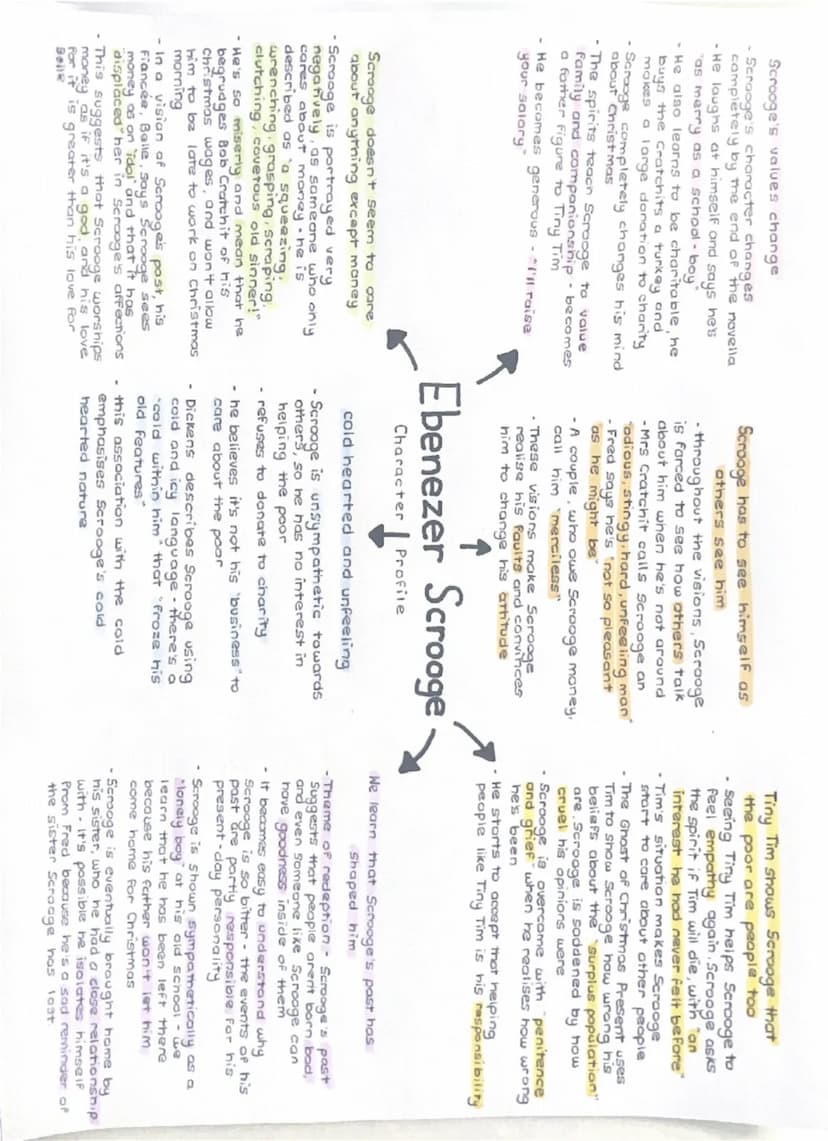 Scrooge's values change
- Scrooge's character changes
completely by the end of the novella
- He laughs at himself and says he's
"as merry as a school-boy"
- He also learns to be charitable, he
buys the Cratchits a turkey and
makes a large donation to charity
- Scrooge completely changes his mind
about Christmas
- The spirits teach Scrooge to value
family and companionship - becomes
a father figure to Tiny Tim
- He becomes generous - "I'll raise
your salary"
Scrooge has to see himself as
others see him
- throughout the visions, Scrooge
is forced to see how others talk
about him when he's not around
- Mrs Cratchit calls Scrooge an
"odious, stingy, hard, unfeeling man"
- Fred says he's "not so pleasant
as he might be"
- A couple, who owe Scrooge money,
call him "merciless"
- These visions make Scrooge
realise his faults and convinces
him to change his attitude
Tiny Tim shows Scrooge that
the poor are people too
- Seeing Tiny Tim helps Scrooge to
feel empathy again. Scrooge asks
the spirit if Tim will die, with "an
interest he had never felt before"
- Tim's situation makes Scrooge
start to care about other people
- The Ghost of Christmas Present uses
Tim to show Scrooge how wrong his
beliefs about the "surplus population"
are. Scrooge is saddened by how
cruel his opinions were
- Scrooge is overcome with "penitence
and grief" when he realises how wrong
he's been
- He starts to accept that helping
people like Tiny Tim is his responsibility
Ebenezer Scrooge
Character Profile
Scrooge doesn't seem to care
about anything except money
- Scrooge is portrayed very
negatively, as someone who only
cares about money - he is
described as "a squeezing,
wrenching, grasping, scraping,
clutching, covetous old sinner!"
- He's so miserly and mean that he
begrudges Bob Cratchit of his
Christmas wages, and won't allow
him to be late to work on Christmas
morning
- In a vision of Scrooge's past, his
fiancée, Belle, says Scrooge sees
money as an "idol" and that it has
"displaced" her in Scrooge's affections
- This suggests that Scrooge worships
money as if it's a god, and his love
for it is greater than his love for
Belle
cold hearted and unfeeling
- Scrooge is unsympathetic towards
others, so he has no interest in
helping the poor
- refuses to donate to charity
- he believes it's not his "business" to
care about the poor
- Dickens describes Scrooge using
cold and icy language - there's a
"cold within him" that "froze his
old features"
- this association with the cold
emphasises Scrooge's cold
hearted nature
We learn that Scrooge's past has
shaped him
- Theme of redeption - Scrooge's past
suggests that people aren't born bad,
and even someone like Scrooge can
have goodness inside of them
- It becomes easy to understand why
Scrooge is so bitter - the events of his
past are partly responsible for his
present-day personality
- Scrooge is shown sympathetically as a
"lonely boy" at his old school - we
learn that he has been left there
because his father won't let him
come home for Christmas
- Scrooge is eventually brought home by
his sister, who he had a close relationship
with - it's possible he isolates himself
from Fred because he's a sad reminder of
the sister Scrooge has lost